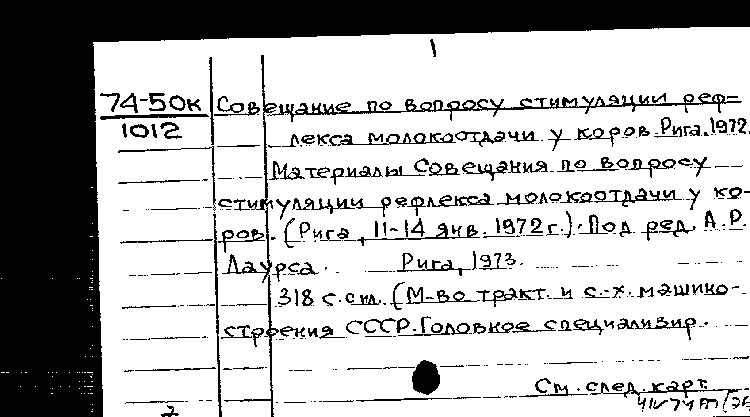 1
74-50к Совещание по вопросу стимуляции реф=
1012 лекса молокоотдачи у коров. Рига. 1972.
Материалы Совещания по вопросу
стимуляции рефлекса молокоотдачи у ко-
ров. (Рига, 11-14 янв. 1972 г.). Под ред. А.Р.
Лаурса. Рига, 1973.
318 с. с ил. (М-во тракт. и с.-х. машино-
строения СССР. Головное специализир.
См. след. карт.